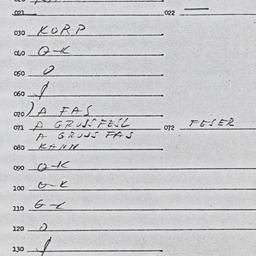 021 022
030 KORP
040 Q-K
050 O
060
070 A FAS
071 A GRUSSFESL 072 FESER
A GRUSS FAS
080 KANN
090 Q-K
100 G-K
110 G-K
120 O
130